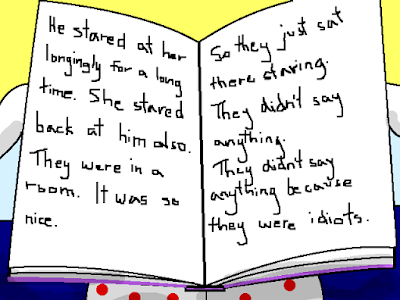 He stared at her
longingly for a long
time. She stared
back at him also.
They were in a
room. It was so
nice.
So they just sat
there staring.
They didn't say
anything.
They didn't say
anything because
they were idiots.